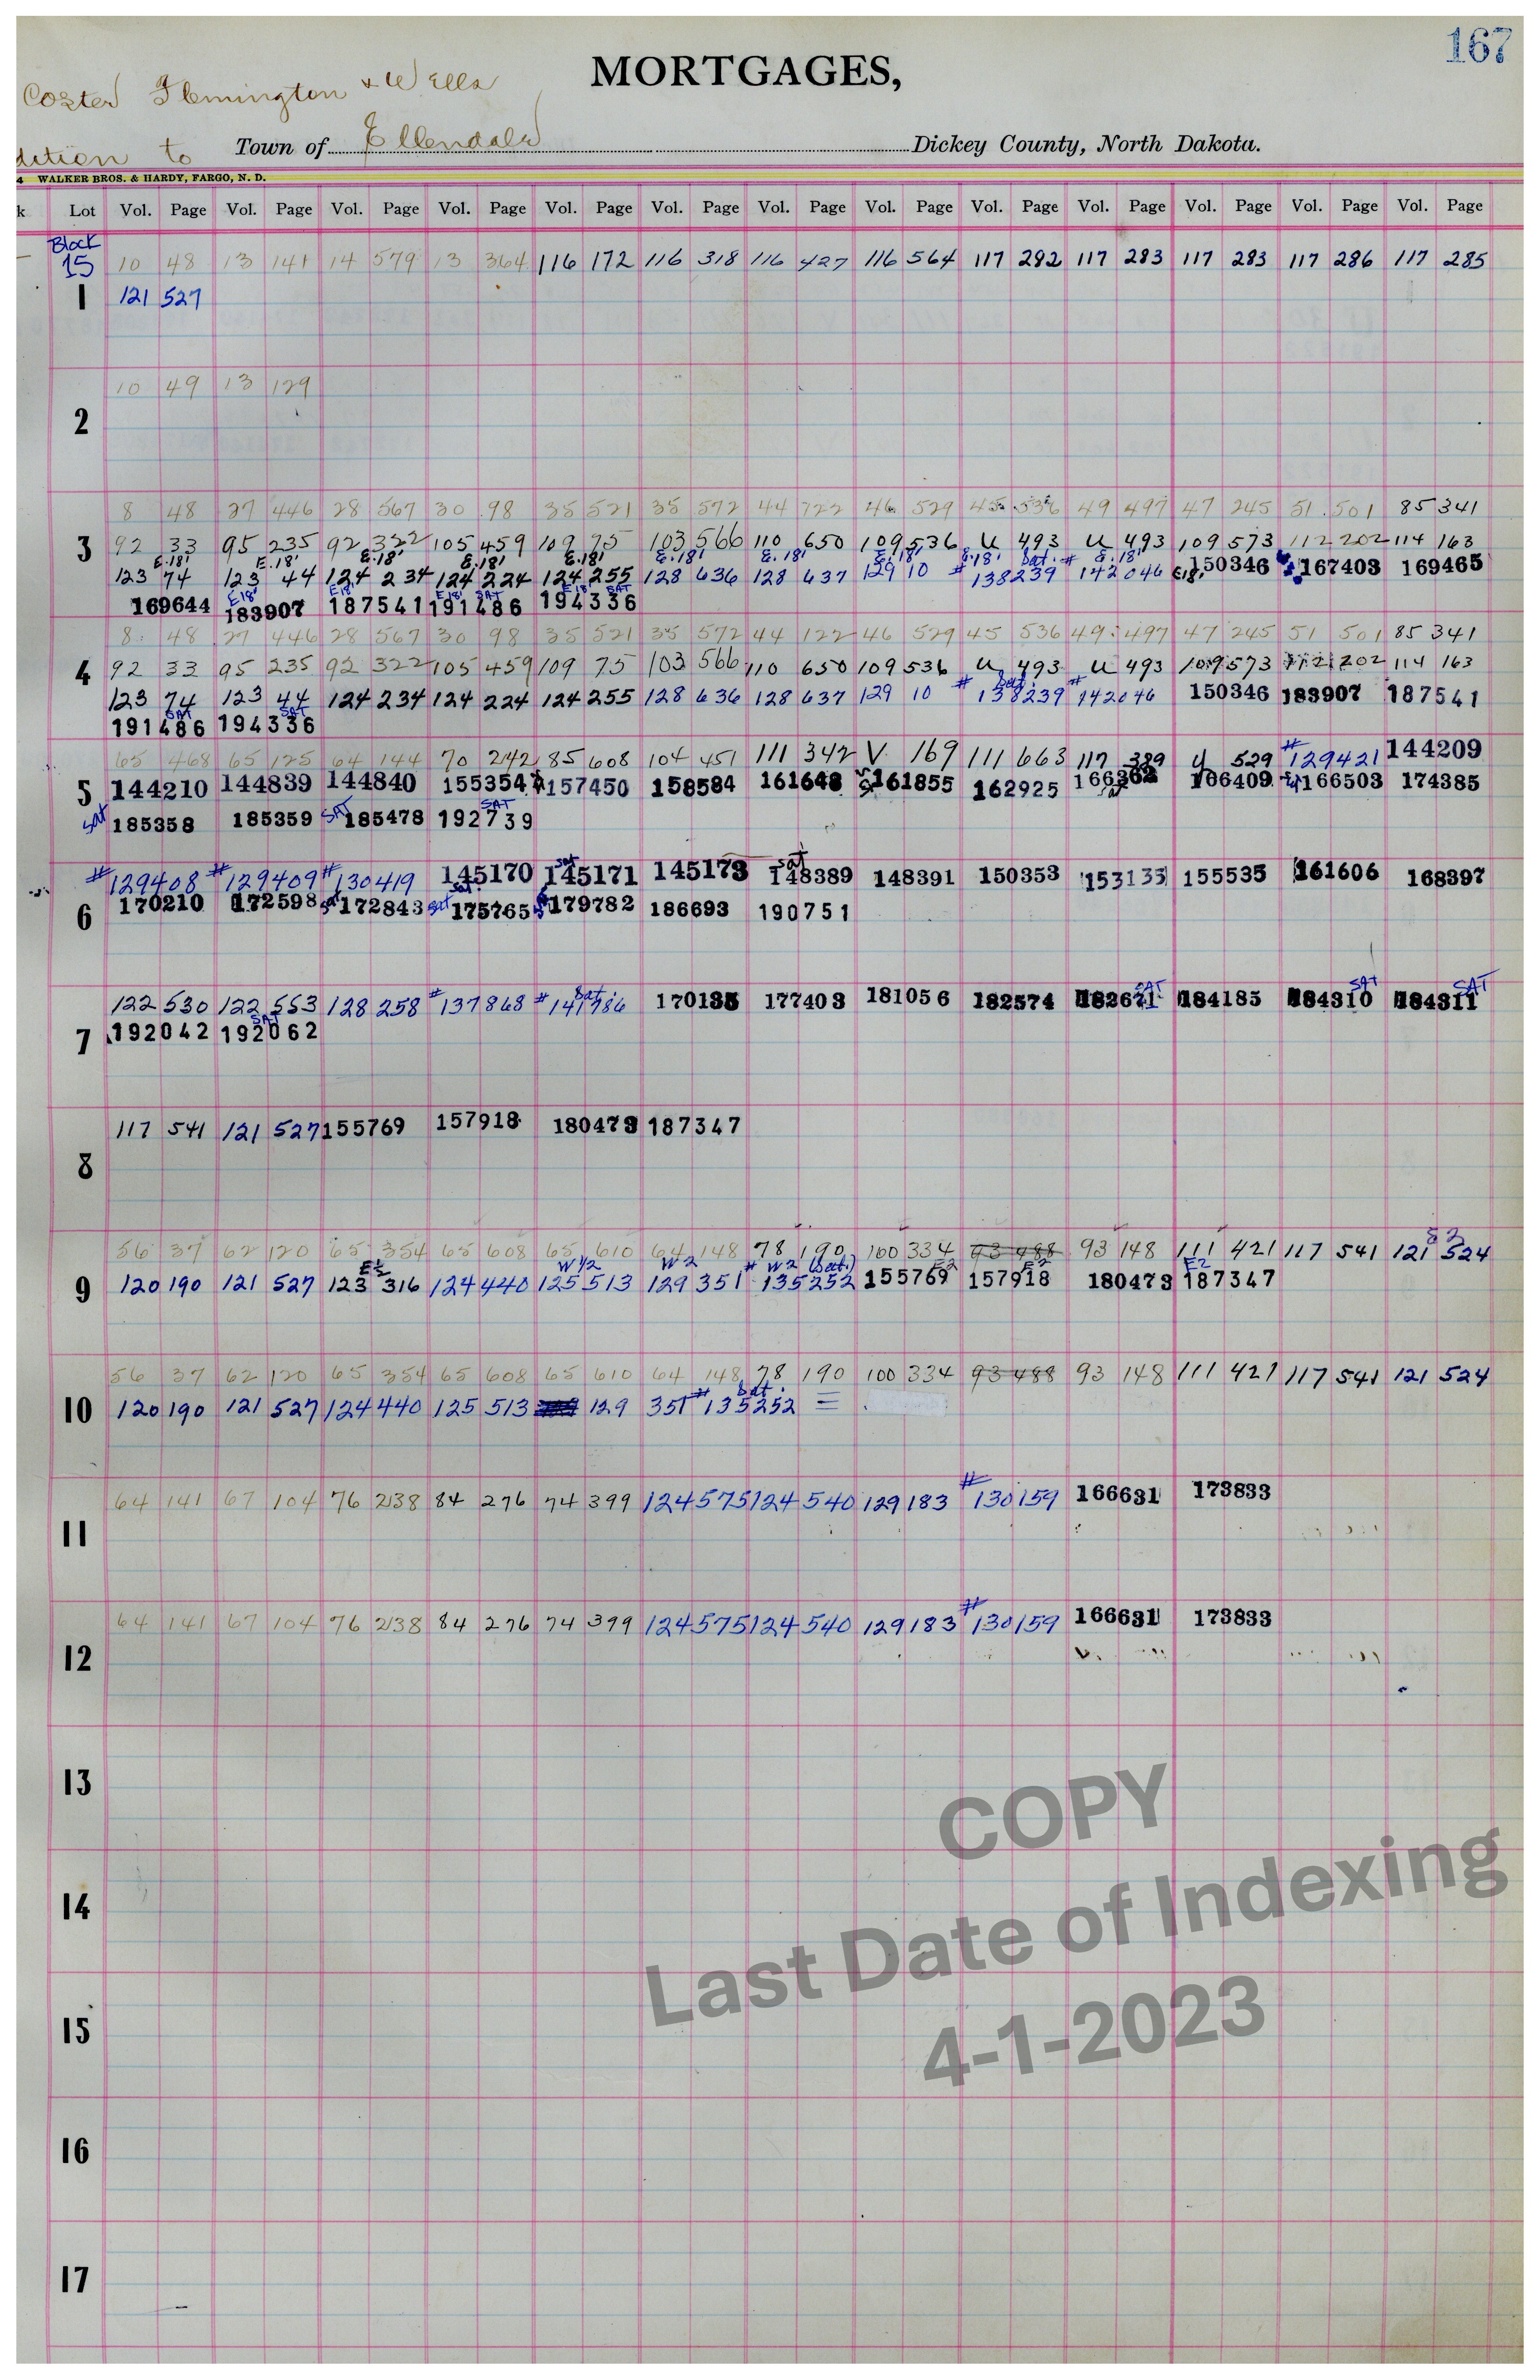 167
MORTGAGES,
Coster Flemington & Wells
dition to Town of Ellendale Dickey County, North Dakota.
4 WALKER BROS. & HARDY, FARGO, N. D.
k Lot Vol. Page Vol. Page Vol. Page Vol. Page Vol. Page Vol. Page Vol. Page Vol. Page Vol. Page Vol. Page Vol. Page Vol. Page Vol. Page
Block
15 10 48 13 141 14 579 13 364 116 172 116 318 116 427 116 564 117 282 117 283 117 283 117 286 117 285
1 121 527
10 49 13 129
2
8 48 27 446 28 567 30 98 35 521 35 572 44 122 46 529 45 536 49 497 47 245 51 501 85 341
3 92 33 95 235 92 322 105 459 109 75 103 566 110 650 109 536 U 493 U 493 109 573 112 202 114 163
E.18' E.18' E.18' E.18' E.18' E.18' E.18' E.18' E.18' Sat. # E.18'
123 74 123 44 124 234 124 224 124 255 128 636 128 637 129 10 # 138239 142046 E18' 150346 167403 169465
E18' E18' E18' SAT E18' SAT
169644 183907 187541 191486 194336
8 48 27 446 28 567 30 98 35 521 35 572 44 122 46 529 45 536 49 497 47 245 51 501 85 341
4 92 33 95 235 92 322 105 459 109 75 103 566 110 650 109 536 U 493 U 493 109 573 112 202 114 163
123 74 123 44 124 234 124 224 124 255 128 636 128 637 129 10 # Sat. 138239 # 142046 150346 183907 187541
SAT SAT
191486 194336
65 468 65 125 64 144 70 242 85 608 104 451 111 342 V 169 111 663 117 389 y 529 # 129421 144209
5 144210 144839 144840 155354 157450 158584 161648 161855 162925 166409 166503 174385
Sat 185358 185359 SAT 185478 SAT 192739
# 129408 # 129409 # 130419 145170 sat 145171 145173 sat 148389 148391 150353 153135 155535 161606 168397
6 170210 172598 sat 172843 sat 175765 179782 186693 190751
122 530 122 553 128 258 # 137868 # Sat. 141786 170135 177403 181056 182574 SAT 182671 184185 SAT 184310 SAT 184311
7 192042 SAT 192062
117 541 121 527 155769 157918 180473 187347
8
56 37 62 120 65 354 65 608 65 610 64 148 78 190 100 334 93 488 93 148 111 421 117 541 121 524
E½ W½ W2 # W2 (Sat.) E2 E2 E2
9 120 190 121 527 123 316 124 440 125 513 129 351 135252 155769 157918 180473 187347
56 37 62 120 65 354 65 608 65 610 64 148 78 190 100 334 93 488 93 148 111 421 117 541 121 524
10 120 190 121 527 124 440 125 513 129 351 # Sat. 135252
64 141 67 104 76 238 84 276 74 399 124 575 124 540 129 183 # 130159 166631 173833
11
64 141 67 104 76 238 84 276 74 399 124 575 124 540 129 183 # 130159 166631 173833
12
13
14
15
16
17
COPY
Last Date of Indexing
4-1-2023